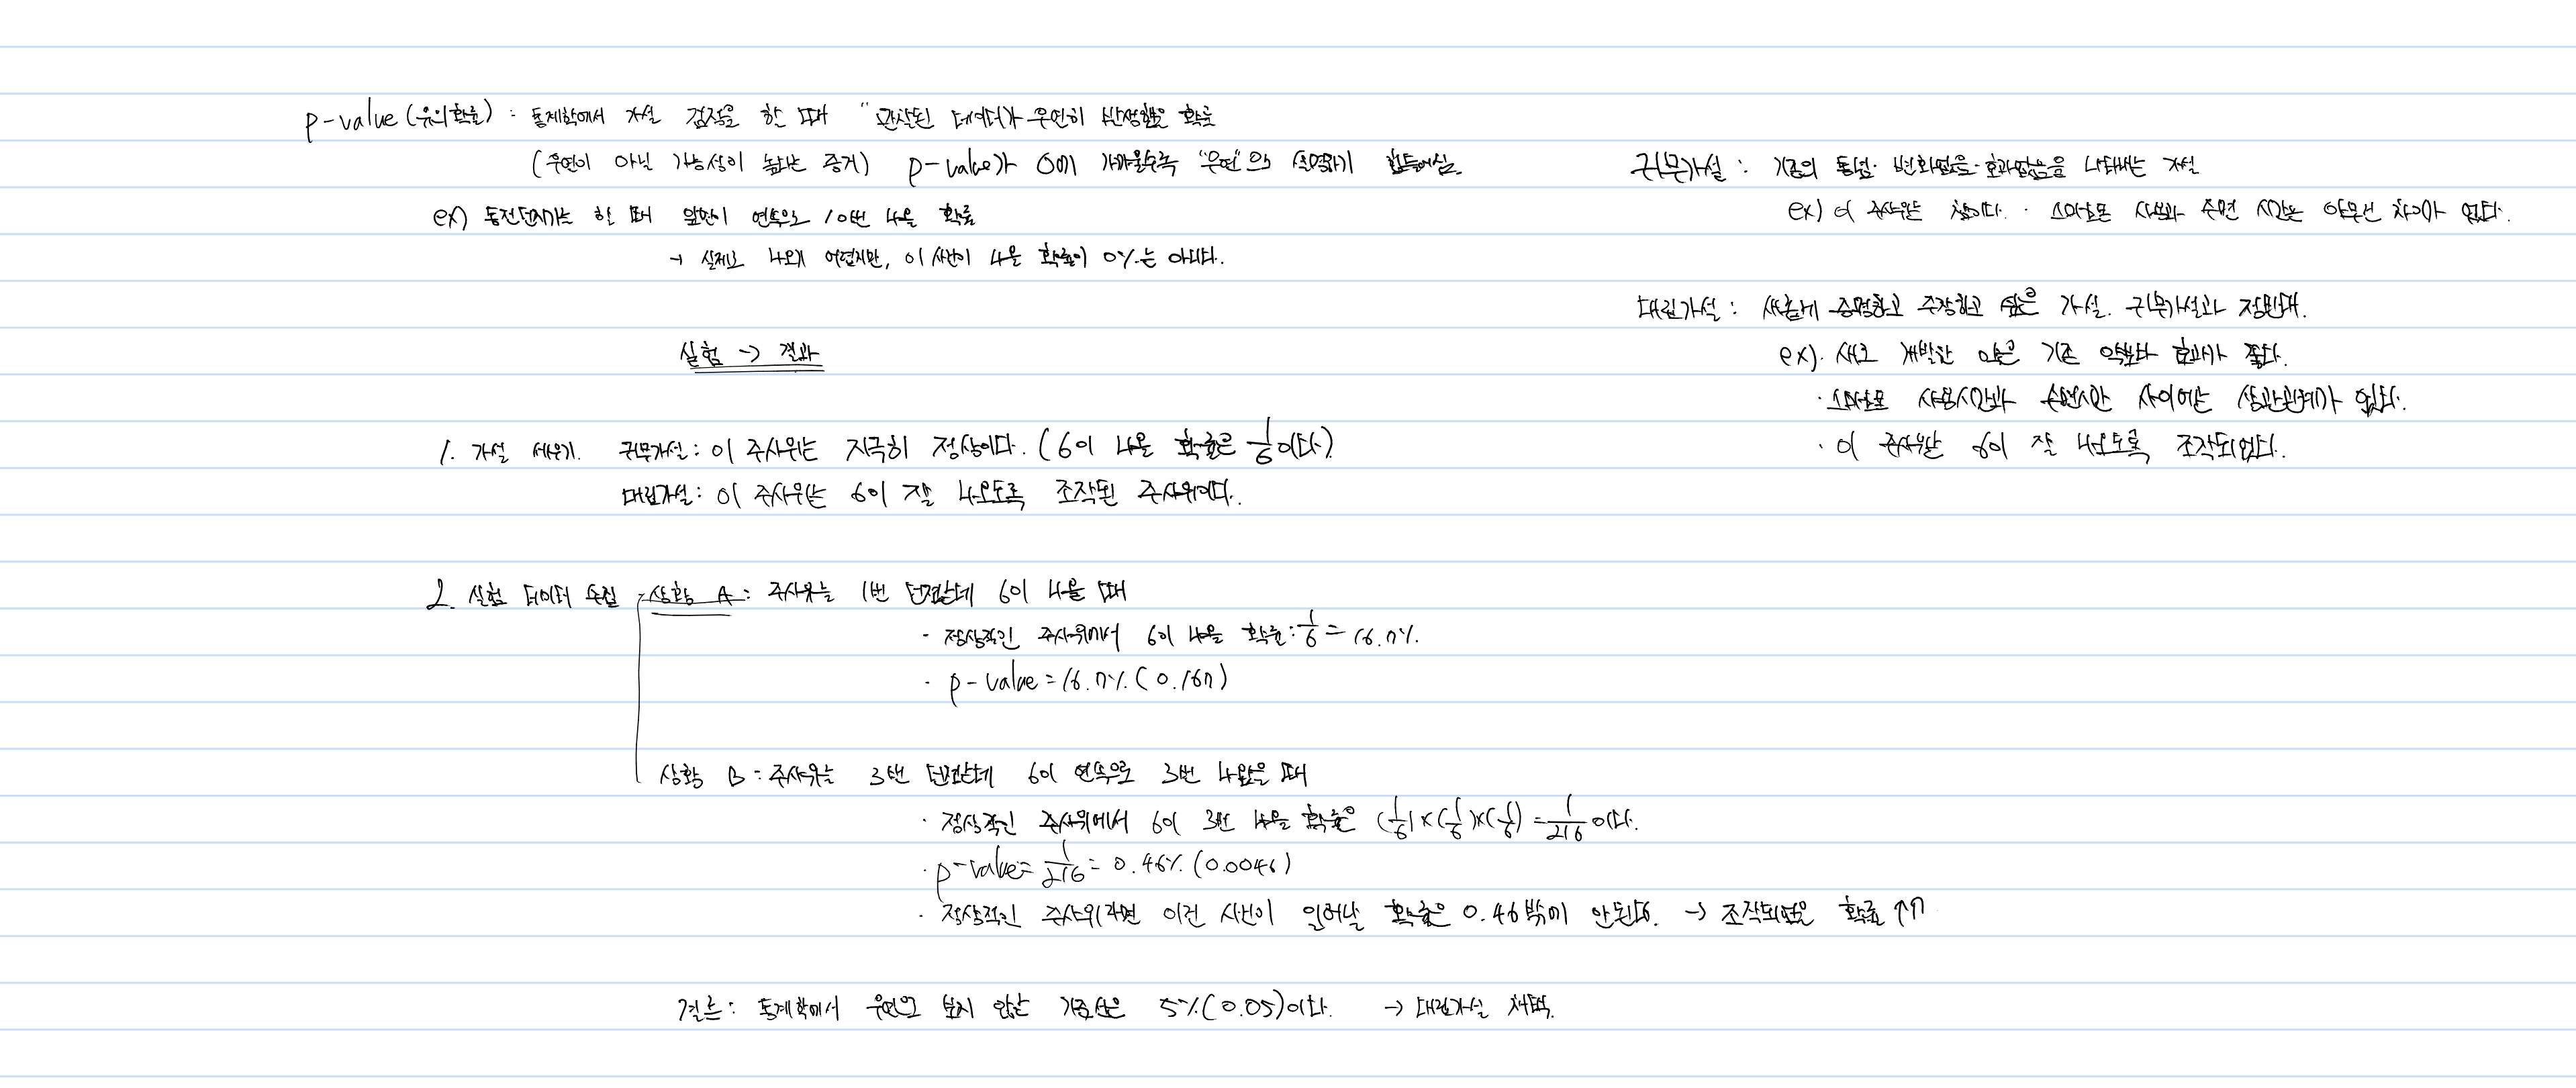 p-value (유의확률) : 통계학에서 가설 검정을 할 때 "관찰된 데이터가 우연히 발생했을 확률
(우연이 아닐 가능성이 높다는 증거) p-value가 0에 가까울수록 "우연"으로 설명하기 힘들어짐.
ex) 동전던지기는 할 때 앞면이 연속으로 10번 나올 확률
→ 실제로 나오기 어렵지만, 이 사건이 나올 확률이 0%는 아니다.
실험 → 결과
1. 가설 세우기. 귀무가설 : 이 주사위는 지극히 정상이다. (6이 나올 확률은 1/6이다)
대립가설 : 이 주사위는 6이 잘 나오도록 조작된 주사위이다.
2. 실험 데이터 수집 상황 A : 주사위를 1번 던졌는데 6이 나올 때
· 정상적인 주사위에서 6이 나올 확률 : 1/6 = 16.7%.
· p-value = 16.7% (0.167)
상황 B : 주사위를 3번 던졌는데 6이 연속으로 3번 나왔을 때
· 정상적인 주사위에서 6이 3번 나올 확률은 (1/6)×(1/6)×(1/6) = 1/216 이다.
· p-value = 1/216 = 0.46% (0.0046)
· 정상적인 주사위라면 이런 사건이 일어날 확률은 0.46밖에 안된다. → 조작되었을 확률 ↑↑
결론 : 통계학에서 우연으로 보지 않는 기준선은 5% (0.05)이다. → 대립가설 채택.
귀무가설 : 기존의 통념· 변화없음·효과없음을 나타내는 가설
ex) 이 주사위는 정상이다. · 스마트폰 사용과 수면 시간은 아무런 차이가 없다.
대립가설 : 새롭게 증명하고 주장하고 싶은 가설. 귀무가설과 정반대.
ex). 새로 개발한 약은 기존 약보다 효과가 좋다.
· 스마트폰 사용시간과 수면시간 사이에는 상관관계가 있다.
· 이 주사위는 6이 잘 나오도록 조작되었다.